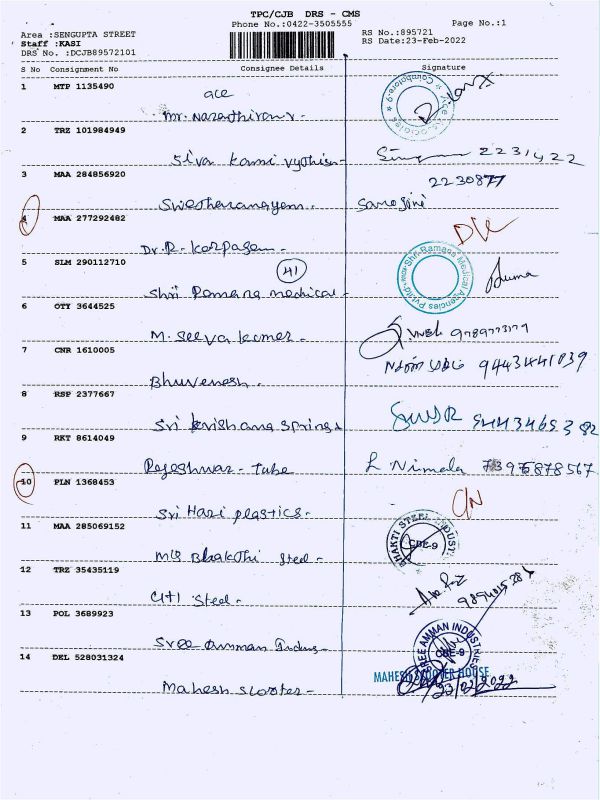 TPC/CJB DRS - CMS
Phone No.:0422-3505555
Page No.:1
Area :SENGUPTA STREET
Staff :KASI
DRS No. :DCJB89572101
RS No.:895721
RS Date:23-Feb-2022
S No Consignment No Consignee Details Signature
1 MTP 1135490
ace
Coimbatore-9
2 TRZ 101984949
Siva
2231422
3 MAA 284856920
2230877
Sarojini
4 MAA 277292482
Dr. R. Karpagam -
5 SLM 290112710
41
Shri Ramana medical -
Shri Ramana Medical Agencies Pvt.Ltd
6 OTY 3644525
M. Seeva kumar -
7 CNR 1610005
9443441039
Bhuvenesh -
8 RSP 2377667
Sri krishana springs
9 RKT 8614049
Rajeshwar - tube
L Nimala
10 PLN 1368453
Sri Hari plastics -
11 MAA 285069152
BHAKTI STEEL INDUST
CBE-9
M/s Bhakthi steel -
12 TRZ 35435119
Citi steel -
13 POL 3689923
Sree Amman Indus -
SREE AMMAN INDUSTRIES
CBE-9
14 DEL 528031324
MAHESH SCOOTER HOUSE
Mahesh scooter -
23/02/2022